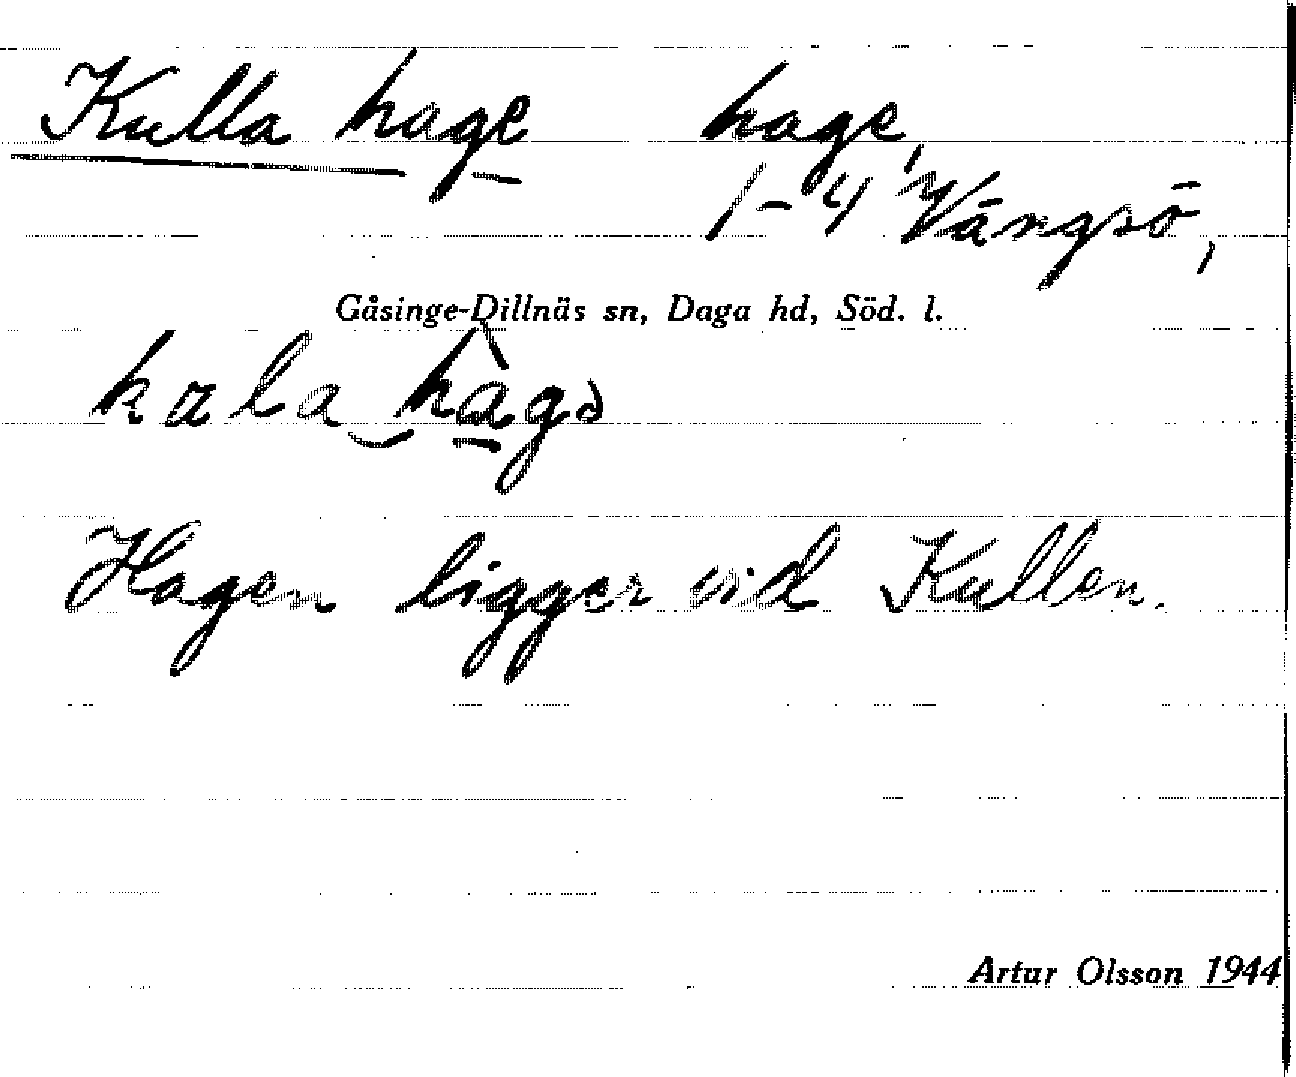 Kulla hage hage,
1-4 Vängsö,
Gåsinge-Dillnäs sn, Daga hd, Söd. l.
Hagen ligger vid Kullen.
Artur Olsson 1944